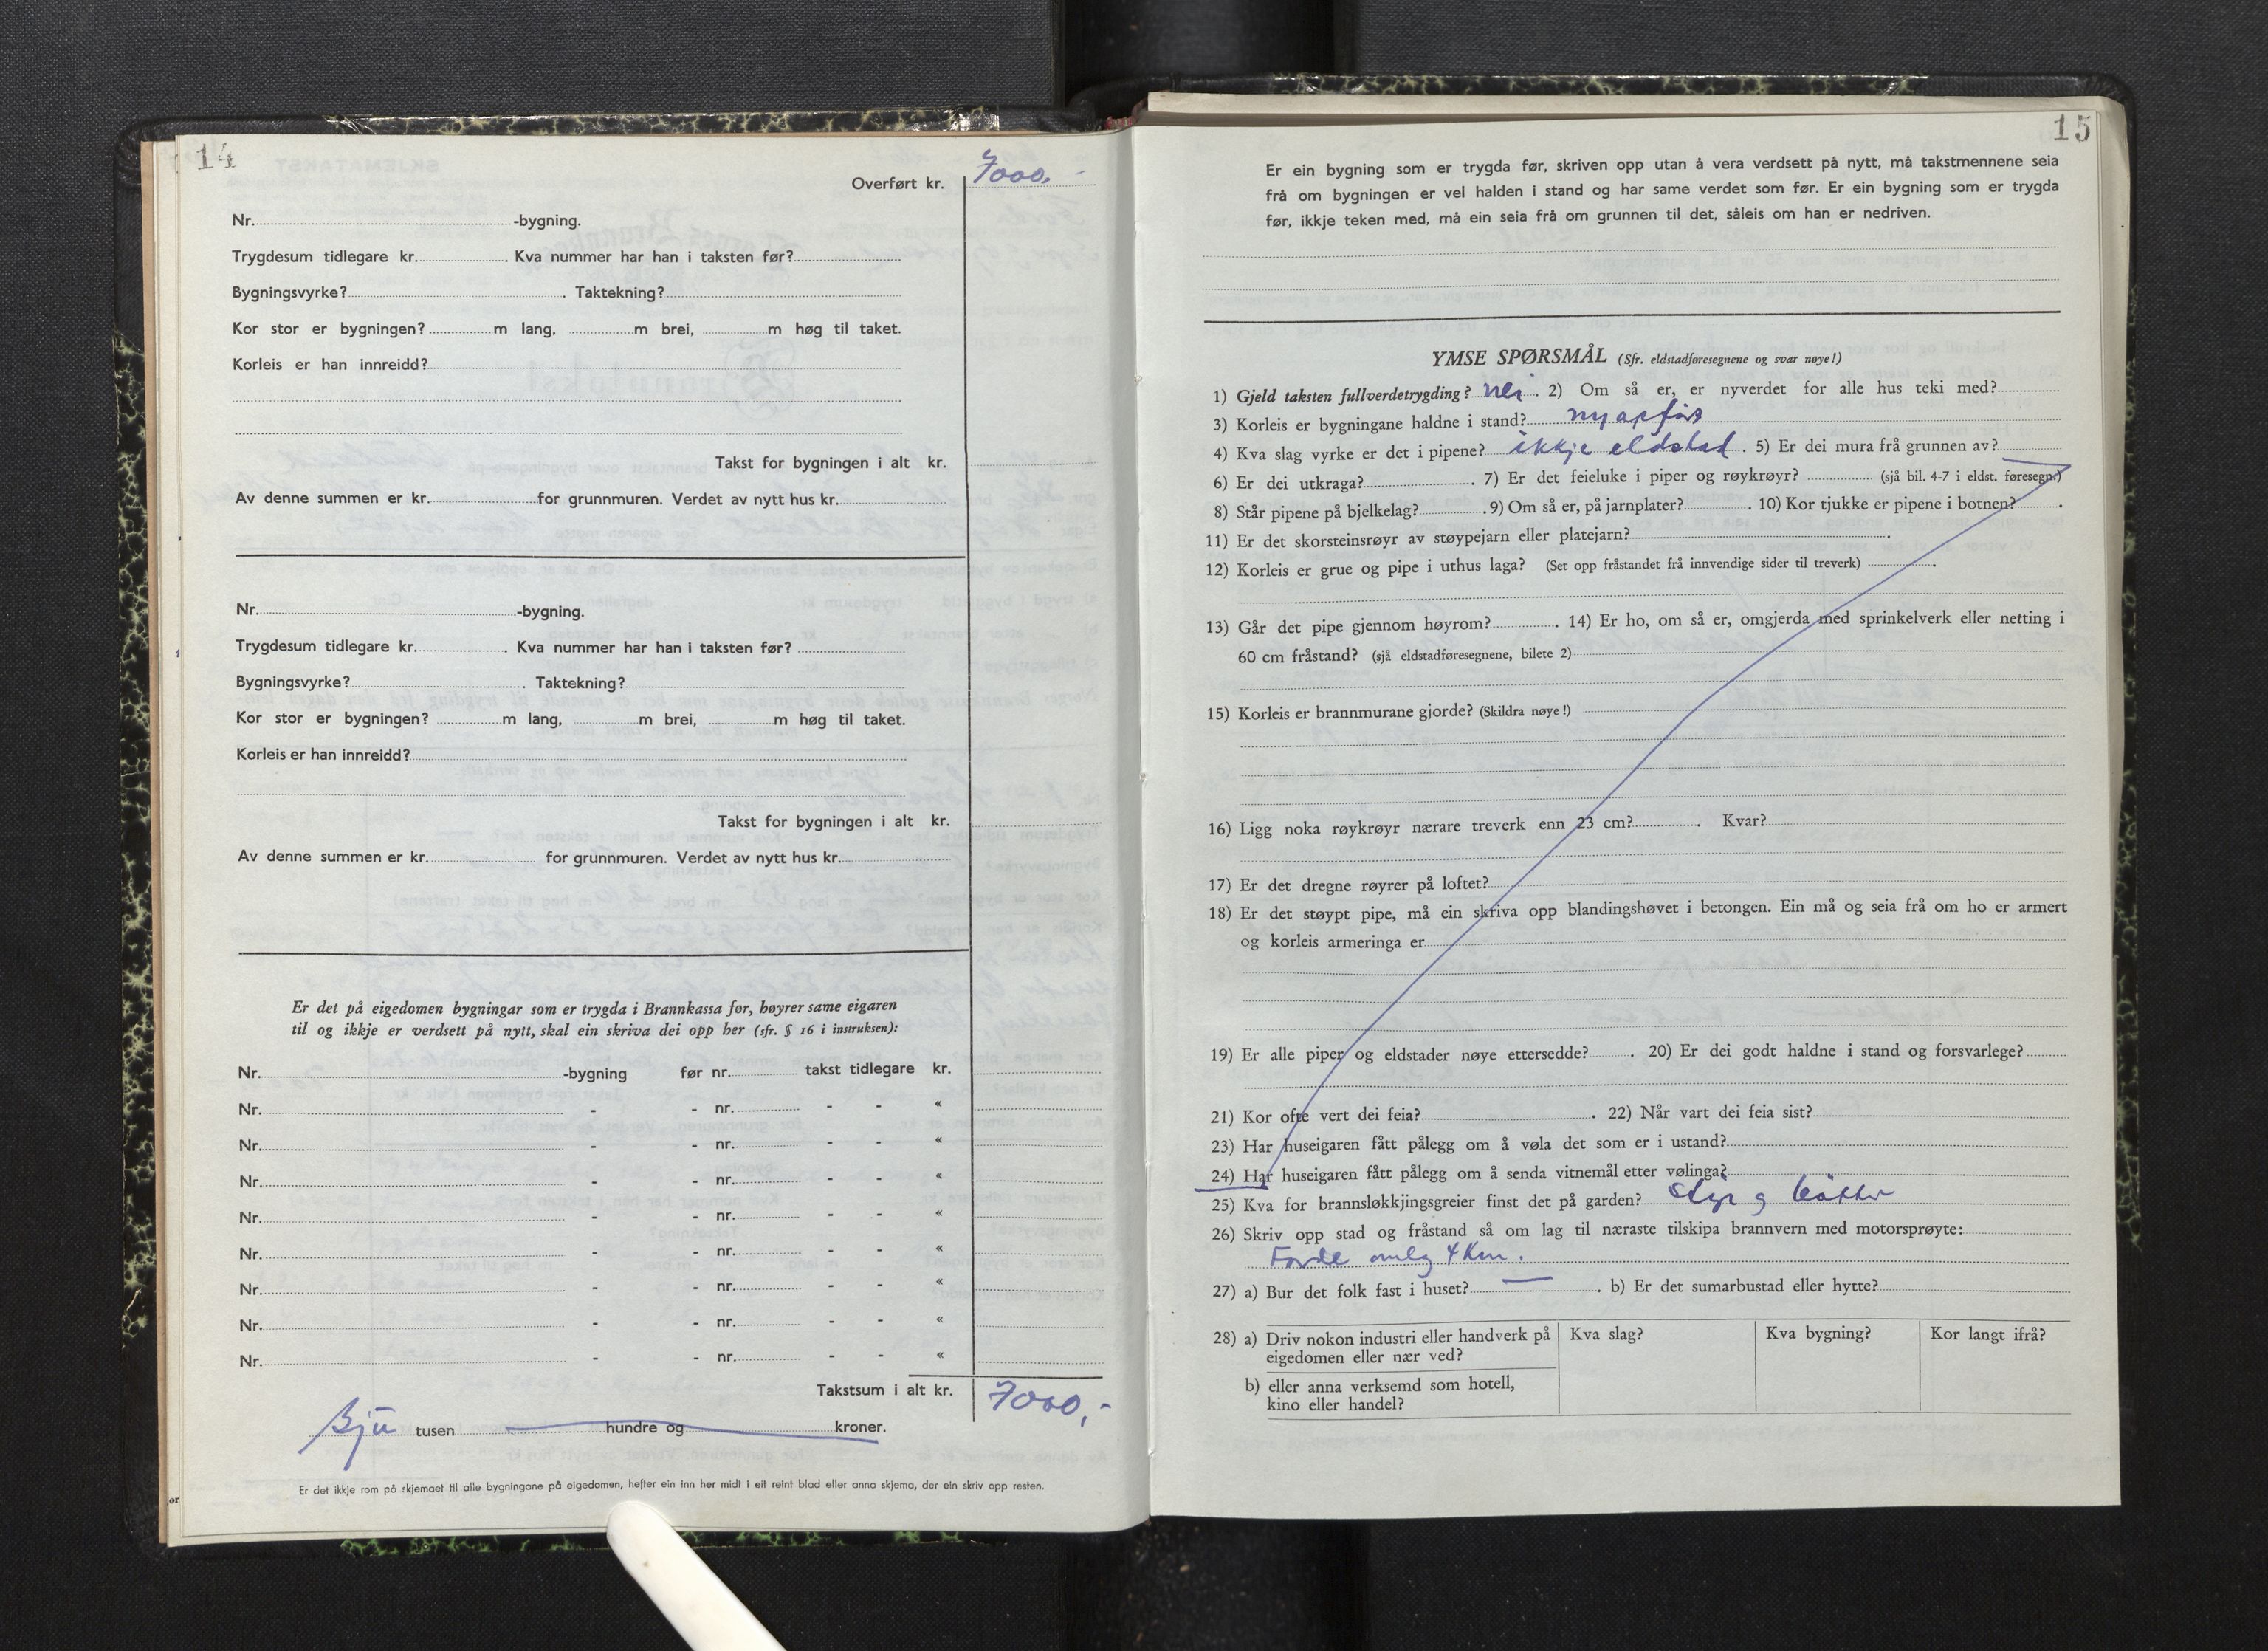 14
Overført kr. 7000,-
Nr. -bygning.
Trygdesum tidlegare kr. . Kva nummer har han i taksten før?
Bygningsvyrke? . Taktekning?
Kor stor er bygningen? m lang, m brei, m høg til taket.
Korleis er han innreidd?
Takst for bygningen i alt kr.
Av denne summen er kr. for grunnmuren. Verdet av nytt hus kr.
Nr. -bygning.
Trygdesum tidlegare kr. . Kva nummer har han i taksten før?
Bygningsvyrke? . Taktekning?
Kor stor er bygningen? m lang, m brei, m høg til taket.
Korleis er han innreidd?
Takst for bygningen i alt kr.
Av denne summen er kr. for grunnmuren. Verdet av nytt hus kr.
Er det på eigedomen bygningar som er trygda i Brannkassa før, høyrer same eigaren
til og ikkje er verdsett på nytt, skal ein skriva dei opp her (sfr. § 16 i instruksen):
Nr. -bygning før nr. takst tidlegare kr.
Nr. - - nr. - - «
Nr. - - nr. - - «
Nr. - - nr. - - «
Nr. - - nr. - - «
Nr. - - nr. - - «
Nr. - - nr. - - «
Nr. - - nr. - - «
Nr. - - nr. - - «
Takstsum i alt kr. 7000,-
Sju tusen hundre og kroner.
Er det ikkje rom på skjemaet til alle bygningane på eigedomen, hefter ein inn her midt i eit reint blad eller anna skjema, der ein skriv opp resten.
15
Er ein bygning som er trygda før, skriven opp utan å vera verdsett på nytt, må takstmennene seia
frå om bygningen er vel halden i stand og har same verdet som før. Er ein bygning som er trygda
før, ikkje teken med, må ein seia frå om grunnen til det, såleis om han er nedriven.
YMSE SPØRSMÅL (Sfr. eldstadføresegnene og svar nøye!)
1) Gjeld taksten fullverdetrygding? nei . 2) Om så er, er nyverdet for alle hus teki med?
3) Korleis er bygningane haldne i stand? nyoppførs
4) Kva slag vyrke er det i pipene? ikkje eldstad . 5) Er dei mura frå grunnen av?
6) Er dei utkraga? . 7) Er det feieluke i piper og røykrøyr? (sjå bil. 4-7 i eldst. føresegn.)
8) Står pipene på bjelkelag? . 9) Om så er, på jarnplater? . 10) Kor tjukke er pipene i botnen? .
11) Er det skorsteinsrøyr av støypejarn eller platejarn? .
12) Korleis er grue og pipe i uthus laga? (Set opp fråstandet frå innvendige sider til treverk) .
13) Går det pipe gjennom høyrom? . 14) Er ho, om så er, omgjerda med sprinkelverk eller netting i
60 cm fråstand? (sjå eldstadføresegnene, bilete 2)
15) Korleis er brannmurane gjorde? (Skildra nøye!)
16) Ligg noka røykrøyr nærare treverk enn 23 cm? . Kvar?
17) Er det dregne røyrer på loftet?
18) Er det støypt pipe, må ein skriva opp blandingshøvet i betongen. Ein må og seia frå om ho er armert
og korleis armeringa er
19) Er alle piper og eldstader nøye ettersedde? . 20) Er dei godt haldne i stand og forsvarlege?
21) Kor ofte vert dei feia? . 22) Når vart dei feia sist?
23) Har huseigaren fått pålegg om å vøla det som er i ustand?
24) Har huseigaren fått pålegg om å senda vitnemål etter vølinga?
25) Kva for brannsløkkjingsgreier finst det på garden? Stige og bøtter
26) Skriv opp stad og fråstand så om lag til næraste tilskipa brannvern med motorsprøyte:
Førde omlag 4 Km.
27) a) Bur det folk fast i huset? — . b) Er det sumarbustad eller hytte?
28) a) Driv nokon industri eller handverk på eigedomen eller nær ved? Kva slag? Kva bygning? Kor langt ifrå?
b) eller anna verksemd som hotell,
kino eller handel?